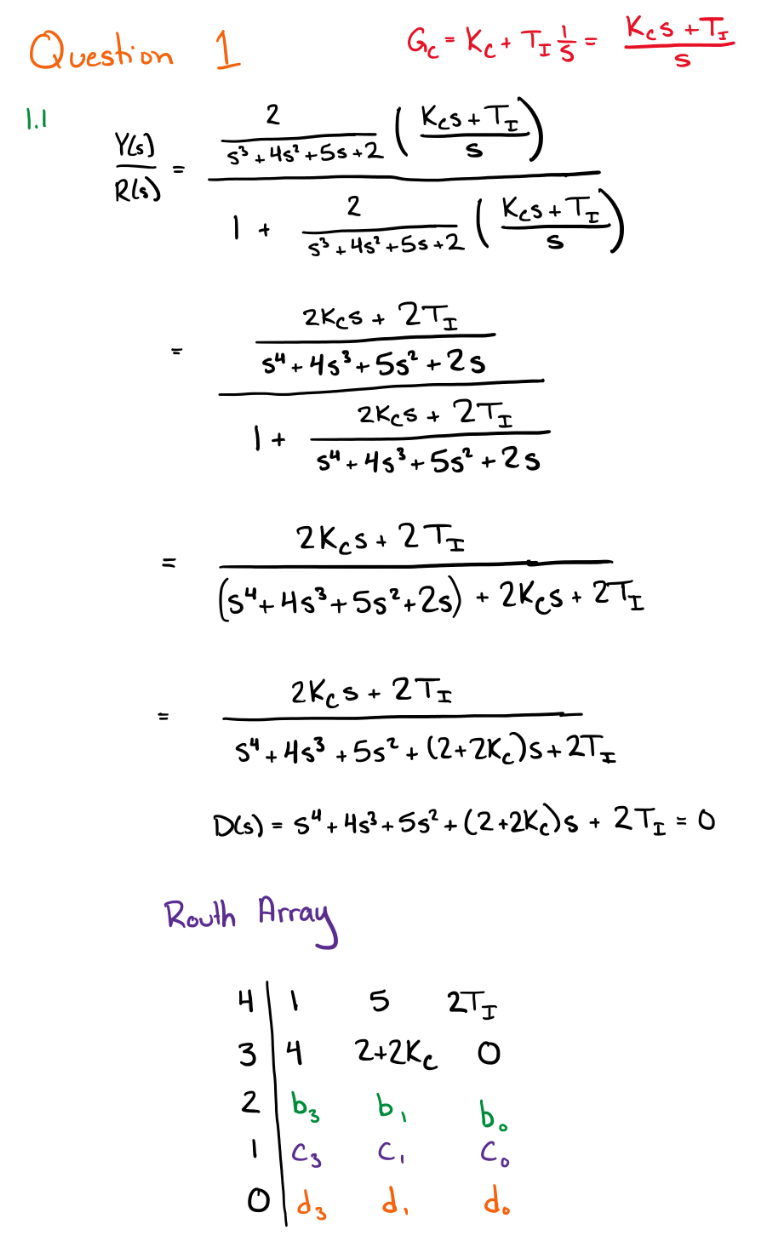 Question 1
G_c = K_c + T_I 1/s = (K_c s + T_I)/s
1.1
Y(s)/R(s) = [2/(s³ + 4s² + 5s + 2) ((K_c s + T_I)/s)] / [1 + 2/(s³ + 4s² + 5s + 2) ((K_c s + T_I)/s)]
= [(2K_c s + 2T_I)/(s⁴ + 4s³ + 5s² + 2s)] / [1 + (2K_c s + 2T_I)/(s⁴ + 4s³ + 5s² + 2s)]
= (2K_c s + 2T_I) / ((s⁴ + 4s³ + 5s² + 2s) + 2K_c s + 2T_I)
= (2K_c s + 2T_I) / (s⁴ + 4s³ + 5s² + (2+2K_c)s + 2T_I)
D(s) = s⁴ + 4s³ + 5s² + (2+2K_c)s + 2T_I = 0
Routh Array
4 | 1 5 2T_I
3 | 4 2+2K_c 0
2 | b₃ b₁ b₀
1 | c₃ c₁ c₀
0 | d₃ d₁ d₀